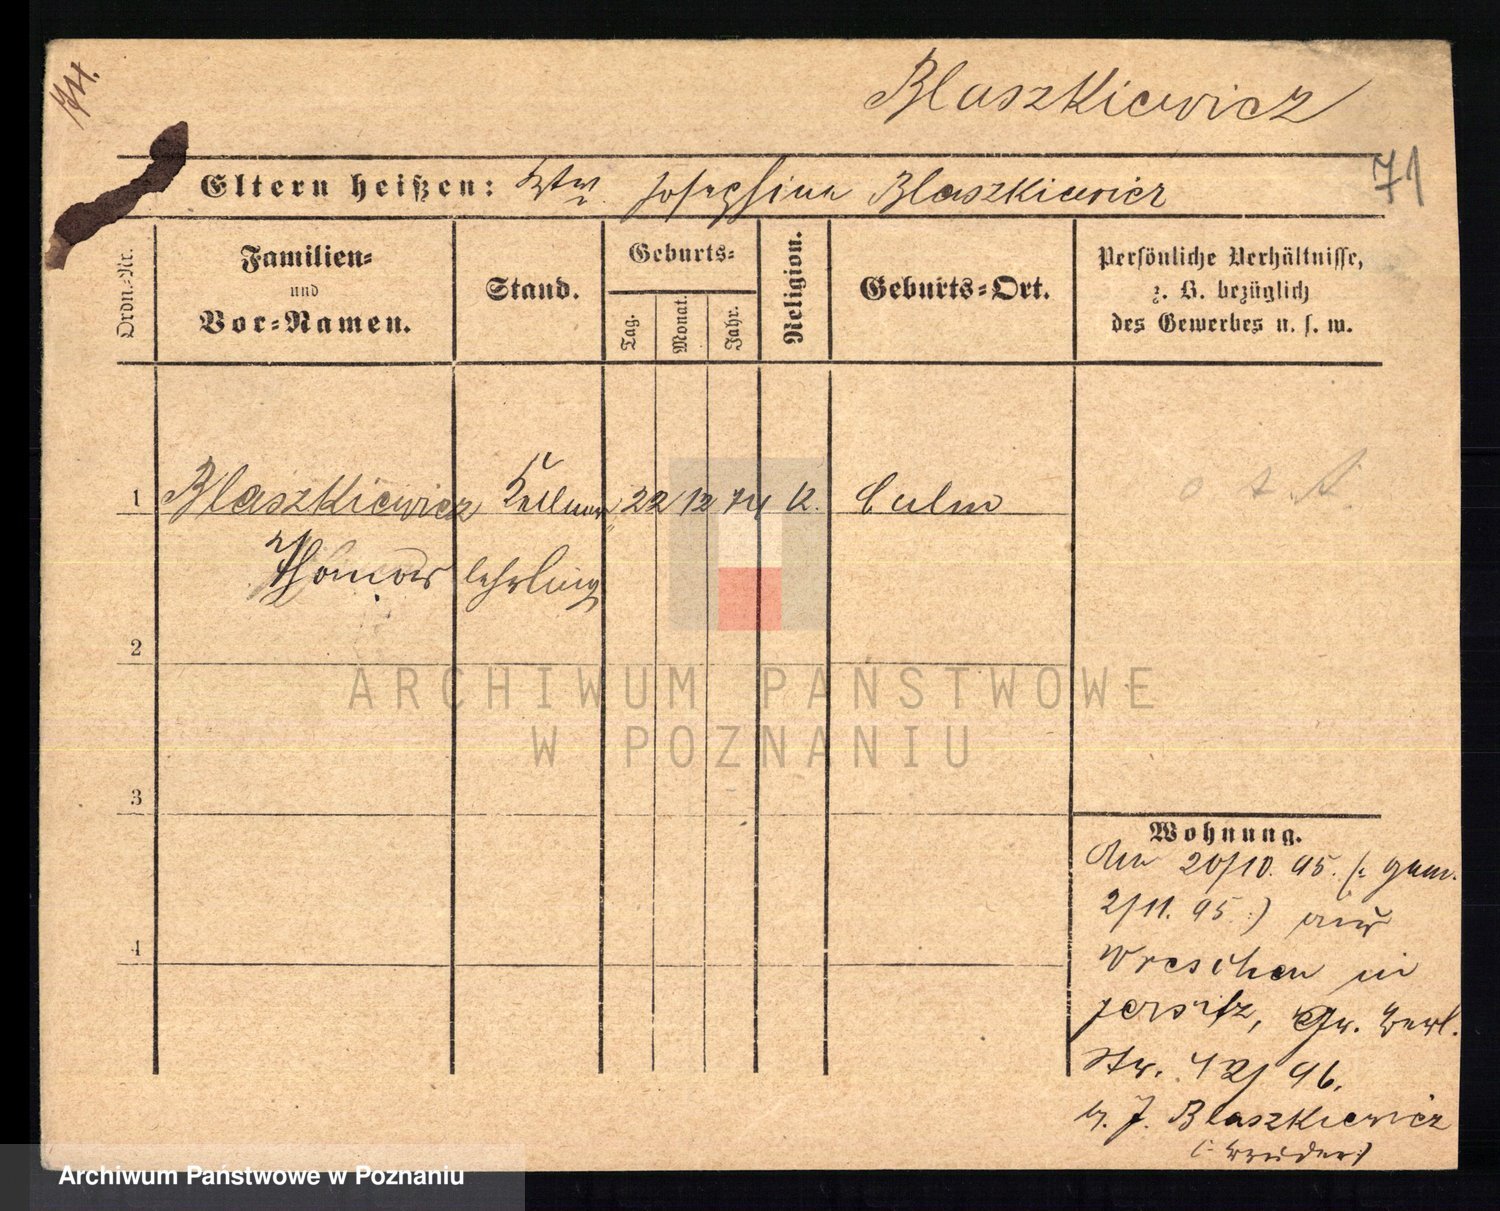 Blaszkiewicz
71
Eltern heißen: Wtw. Josephine Blaszkiewicz
Ordn.-Nr.
Familien-
und
Vor-Namen.
Stand.
Geburts-
Tag.
Monat.
Jahr.
Religion.
Geburts-Ort.
Persönliche Verhältnisse,
z. B. bezüglich
des Gewerbes u. s. w.
1 Blaszkiewicz Kellner 22 12 74 K. Culm
Thomas lehrling
2
ARCHIWUM PAŃSTWOWE
W POZNANIU
3
4
Wohnung.
Am 20/10. 95. (: gem.
2/11. 95 :) aus
Wreschen in
Jersitz, Gr. Berl.
Str. 42/96.
b. J. Blaszkiewicz
(: Bruder :)
Archiwum Państwowe w Poznaniu